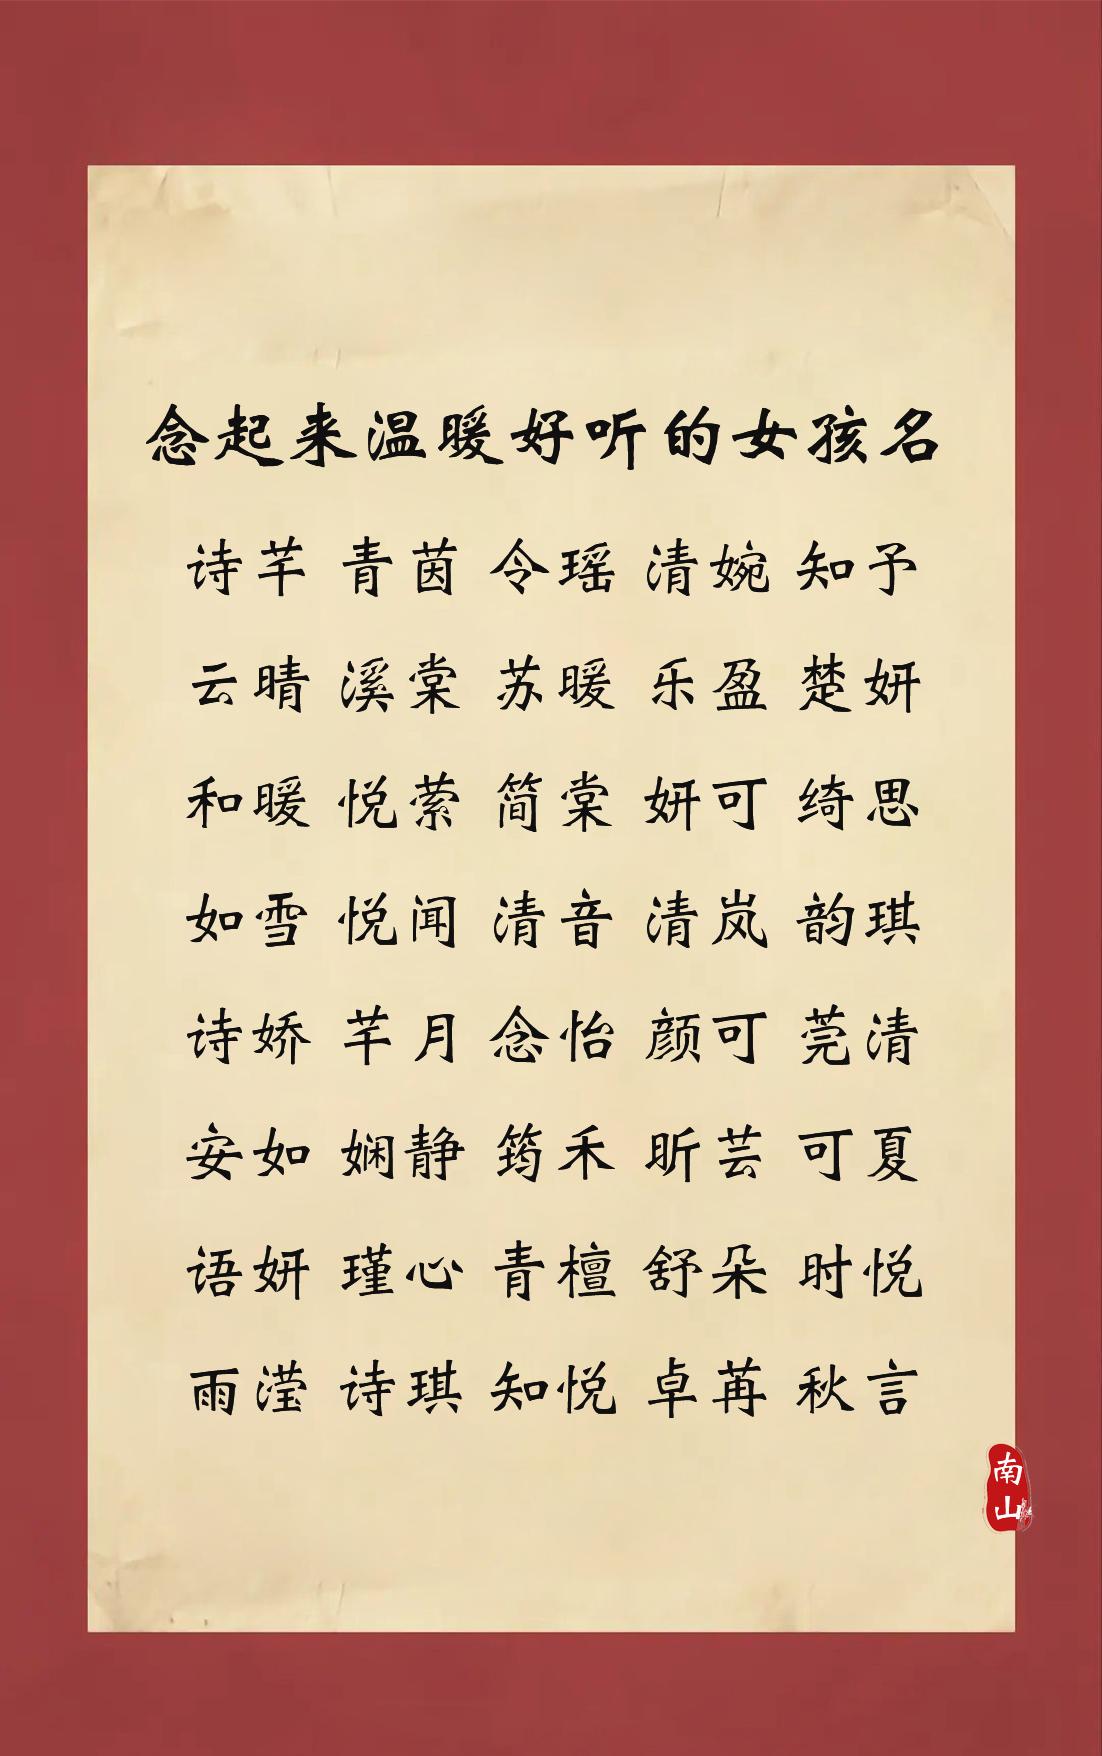 念起来温暖好听的女孩名
诗芊 青茵 令瑶 清婉 知予
云晴 溪棠 苏暖 乐盈 楚妍
和暖 悦萦 简棠 妍可 绮思
如雪 悦闻 清音 清岚 韵琪
诗娇 芊月 念怡 颜可 莞清
安如 娴静 筠禾 昕芸 可夏
语妍 瑾心 青檀 舒朵 时悦
雨滢 诗琪 知悦 卓苒 秋言
南
山